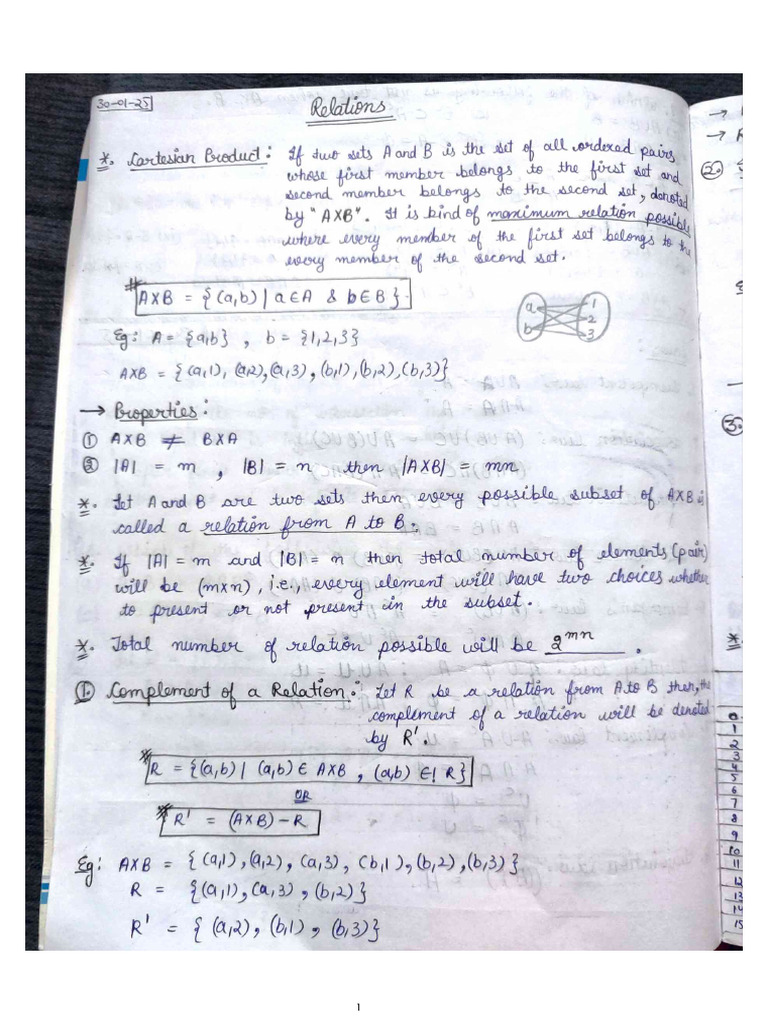 30-01-25
Relations
*. Cartesian Product: If two sets A and B is the set of all ordered pairs
whose first member belongs to the first set and
second member belongs to the second set, denoted
by "A×B". It is kind of maximum relation possible
where every member of the first set belongs to the
every member of the second set.
A×B = {(a,b) | a ∈ A & b ∈ B}
a b 1 2 3
Eg: A = {a,b} , b = {1,2,3}
A×B = {(a,1), (a,2), (a,3), (b,1), (b,2), (b,3)}
→ Properties:
① A×B ≠ B×A
② |A| = m , |B| = n then |A×B| = mn
*. Let A and B are two sets then every possible subset of A×B is
called a relation from A to B.
*. If |A| = m and |B| = n then total number of elements (pair)
will be (m×n), i.e., every element will have two choices whether
to present or not present in the subset.
*. Total number of relation possible will be 2^mn .
①. Complement of a Relation: Let R be a relation from A to B then, the
complement of a relation will be denoted
by R'.
R = {(a,b) | (a,b) ∈ A×B , (a,b) ∉ R}
OR
R' = (A×B) - R
Eg: A×B = {(a,1), (a,2), (a,3), (b,1), (b,2), (b,3)}
R = {(a,1), (a,3), (b,2)}
R' = {(a,2), (b,1), (b,3)}
→
→
②.
③.
*.
0
1
2
3
4
5
6
7
8
9
10
11
12
13
14
15
1